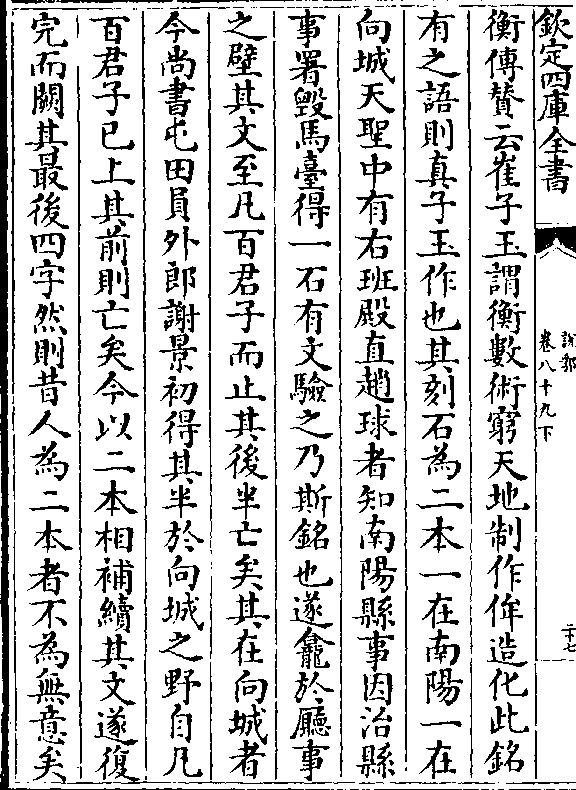 欽定四庫全書
說郛
卷八十九下
二十七
衡傳贊云崔子玉謂衡數術窮天地制作侔造化此銘
有之語則真子玉作也其刻石為二本一在南陽一在
向城天聖中有右班殿直趙球者知南陽縣事因治縣
事署毀馬臺得一石有文驗之乃斯銘也遂龕於廳事
之壁其文至凡百君子而止其後半亡矣其在向城者
今尚書屯田員外郎謝景初得其半於向城之野自凡
百君子已上其前則亡矣今以二本相補續其文遂復
完而闕其最後四字然則昔人為二本者不為無意矣